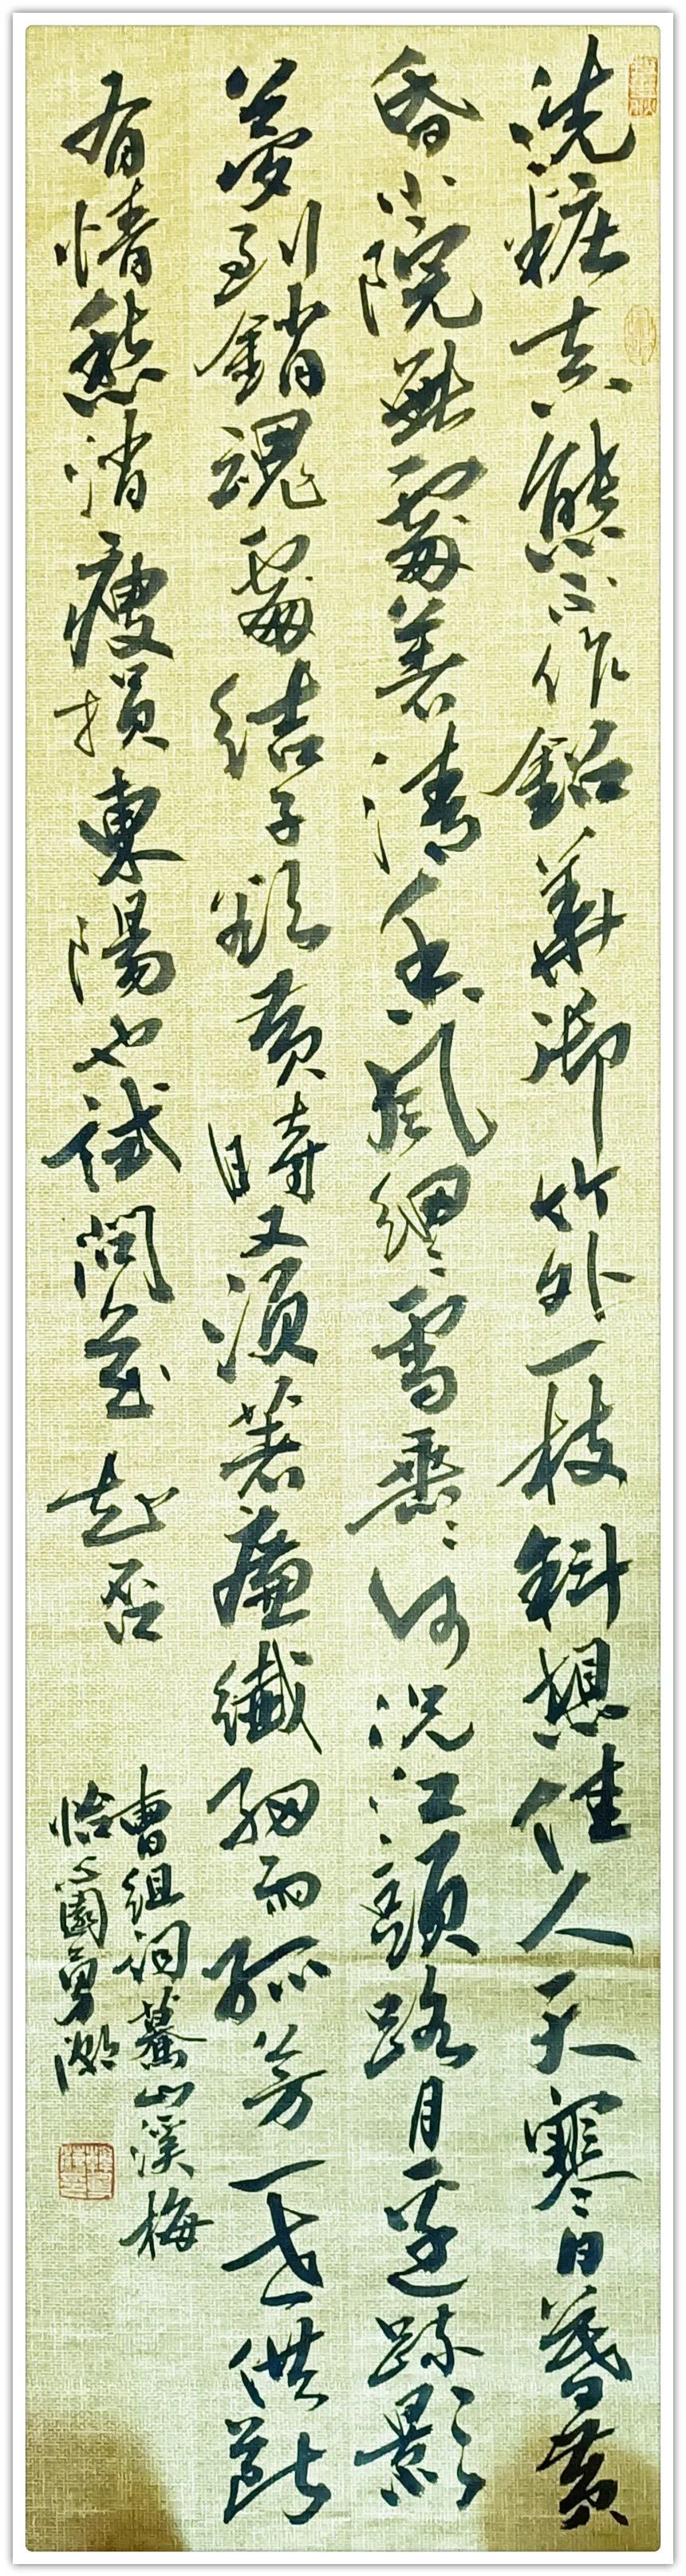 洗粧真態不作鉛華御竹外一枝斜想佳人天寒日暮黄
昏小院無處著清香風細〻雪垂〻何況江頭路月邊疎影
夢到銷魂處結子欲黄時又須著廉纖細雨孤芳一世供斷
有情愁消瘦損東陽也試問花知否
曹組詞驀山溪梅
怡心園勇